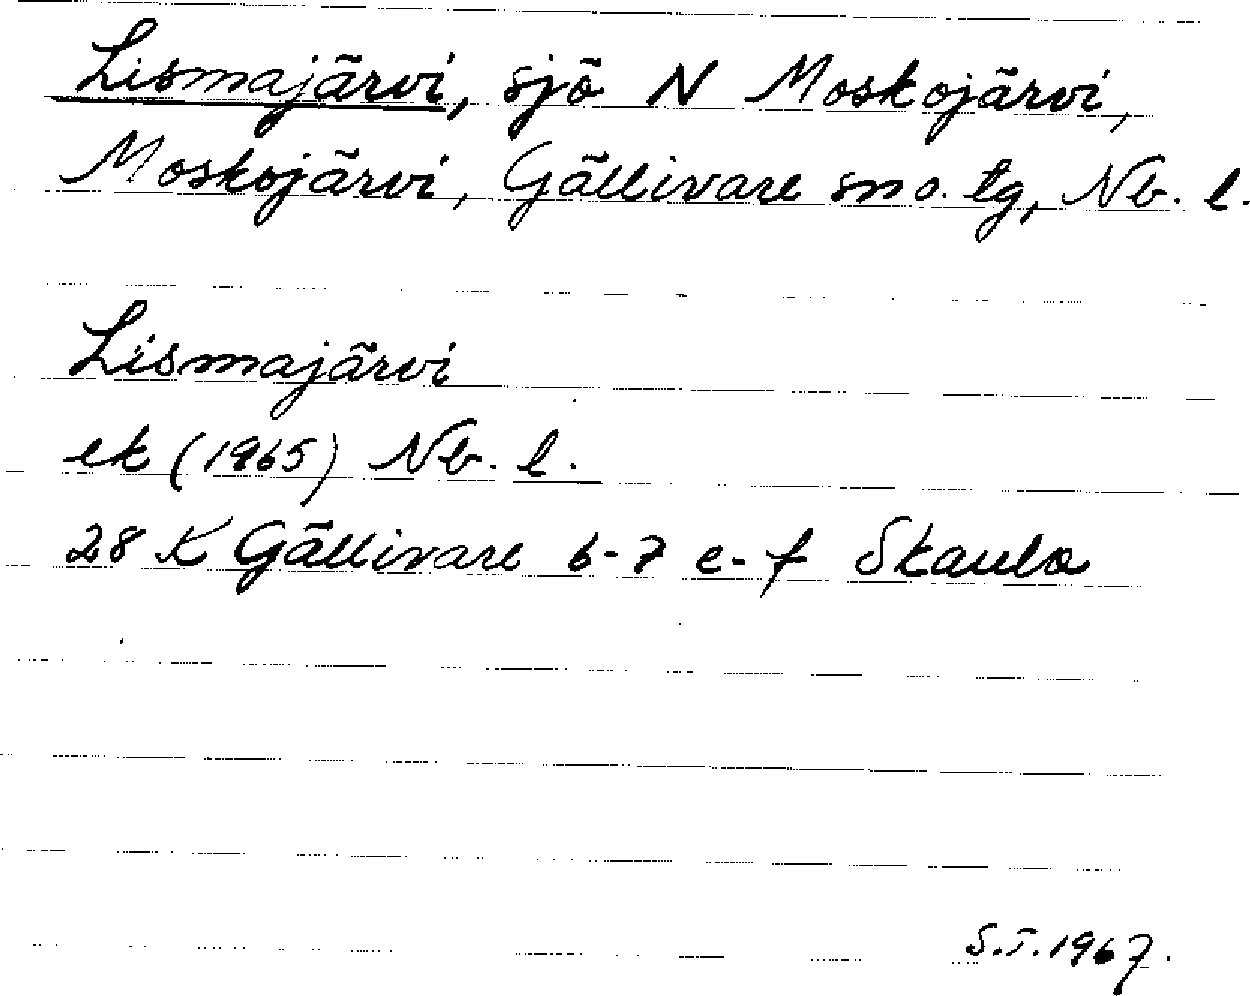 Lismajärvi, sjö N Moskojärvi,
Moskojärvi, Gällivare sn o. tg, Nb. l.
Lismajärvi
ek (1965) Nb. l.
28 K Gällivare 6-7 e-f Skaulo
S.T. 1967.